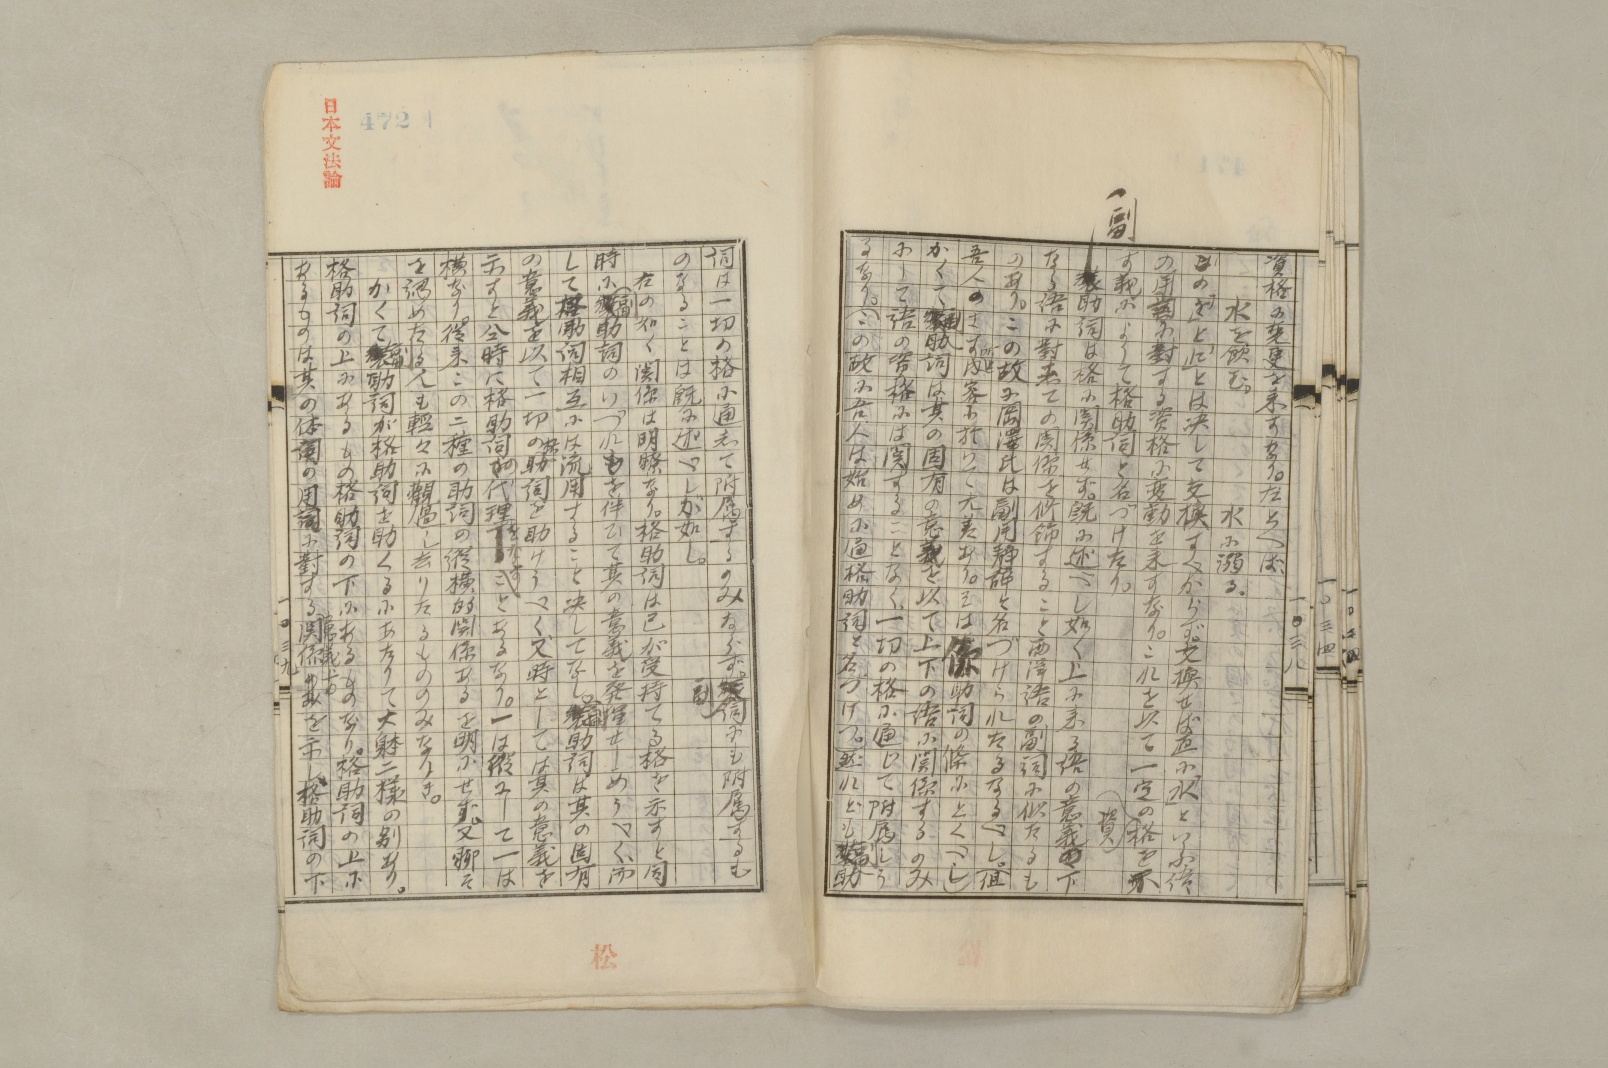 資格の変更を来すなり。たとへば
水を飲む。　水に溺る。
の「を」と「に」とは決して交換すべからず。交換せば直に「水」といふ語
の用言に對する資格に変動を来すなり。これを以て一定の格を
す義によりて格助詞と名づけたり。
副助詞は格に関係せず。既に述べし如く上に来る語の意義の下
なる語に對しての関係を修飾すること西洋語の副詞に似たるも
のあり。この故に岡澤氏は副用静辞と名づけられたるなるべし。但
吾人のさす内容に於いて大差あり。そは係助詞の條にとくべし
かくて副助詞は其の固有の意義を以て上下の語に関係するのみ
にして語の資格には関することなく、一切の格に通じて附属しう
るなり。この故に吾人は始めに通格助詞と名づけつ。然れども副助
一〇三八
副
資
日本文法論
472
詞は一切の格に通じて附属するのみならず、副詞にも附属するも
のなることは既に述べしが如し。
右の如く関係は明瞭なり。格助詞は己が受持てる格を示すと同
時に副助詞のいづれもを伴ひて其の意義を発揮せしめうべく、而
して格助詞相互には流用すること決してなし。副助詞は其の固有
の意義を以て一切の格助詞を助けうべく又時としては其の意義を
示すと仝時に格助詞の代理をなすことあるなり。一は縦にして一は
横なり。従来この二種の助詞の縦横的関係あるを明にせず、又聊そ
を認めたる人も輕々に觀過し去りたるもののみなりき。
かくて副助詞が格助詞を助くるにあたりて大躰二様の別あり。
格助詞の上にあるもの格助詞の下にあるものなり。格助詞の上に
あるものは其の体言の用言に對する関係の意義を示し、格助詞の下
一〇三九
松